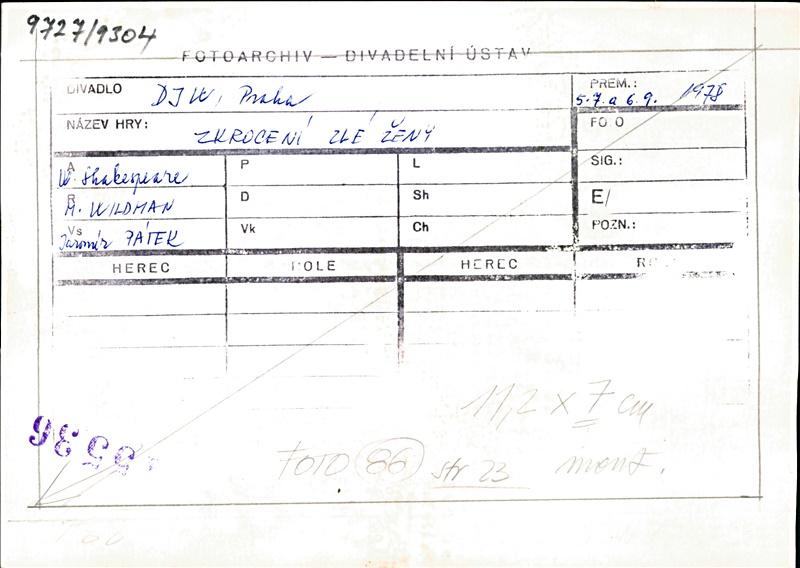 9727/9304
FOTOARCHIV — DIVADELNÍ ÚSTAV
DIVADLO DJW, Praha
PREM.: 5.7. a 6.9. 1978
NÁZEV HRY: ZKROCENÍ ZLÉ ŽENY
FOTO
A W. Shakespeare P L SIG.:
R M. WILDMAN D Sh E/
Vs Jaromír PÁTEK Vk Ch POZN.:
HEREC ROLE HEREC
11,2 x 7 cm
5536
FOTO 86 str 23 mont.